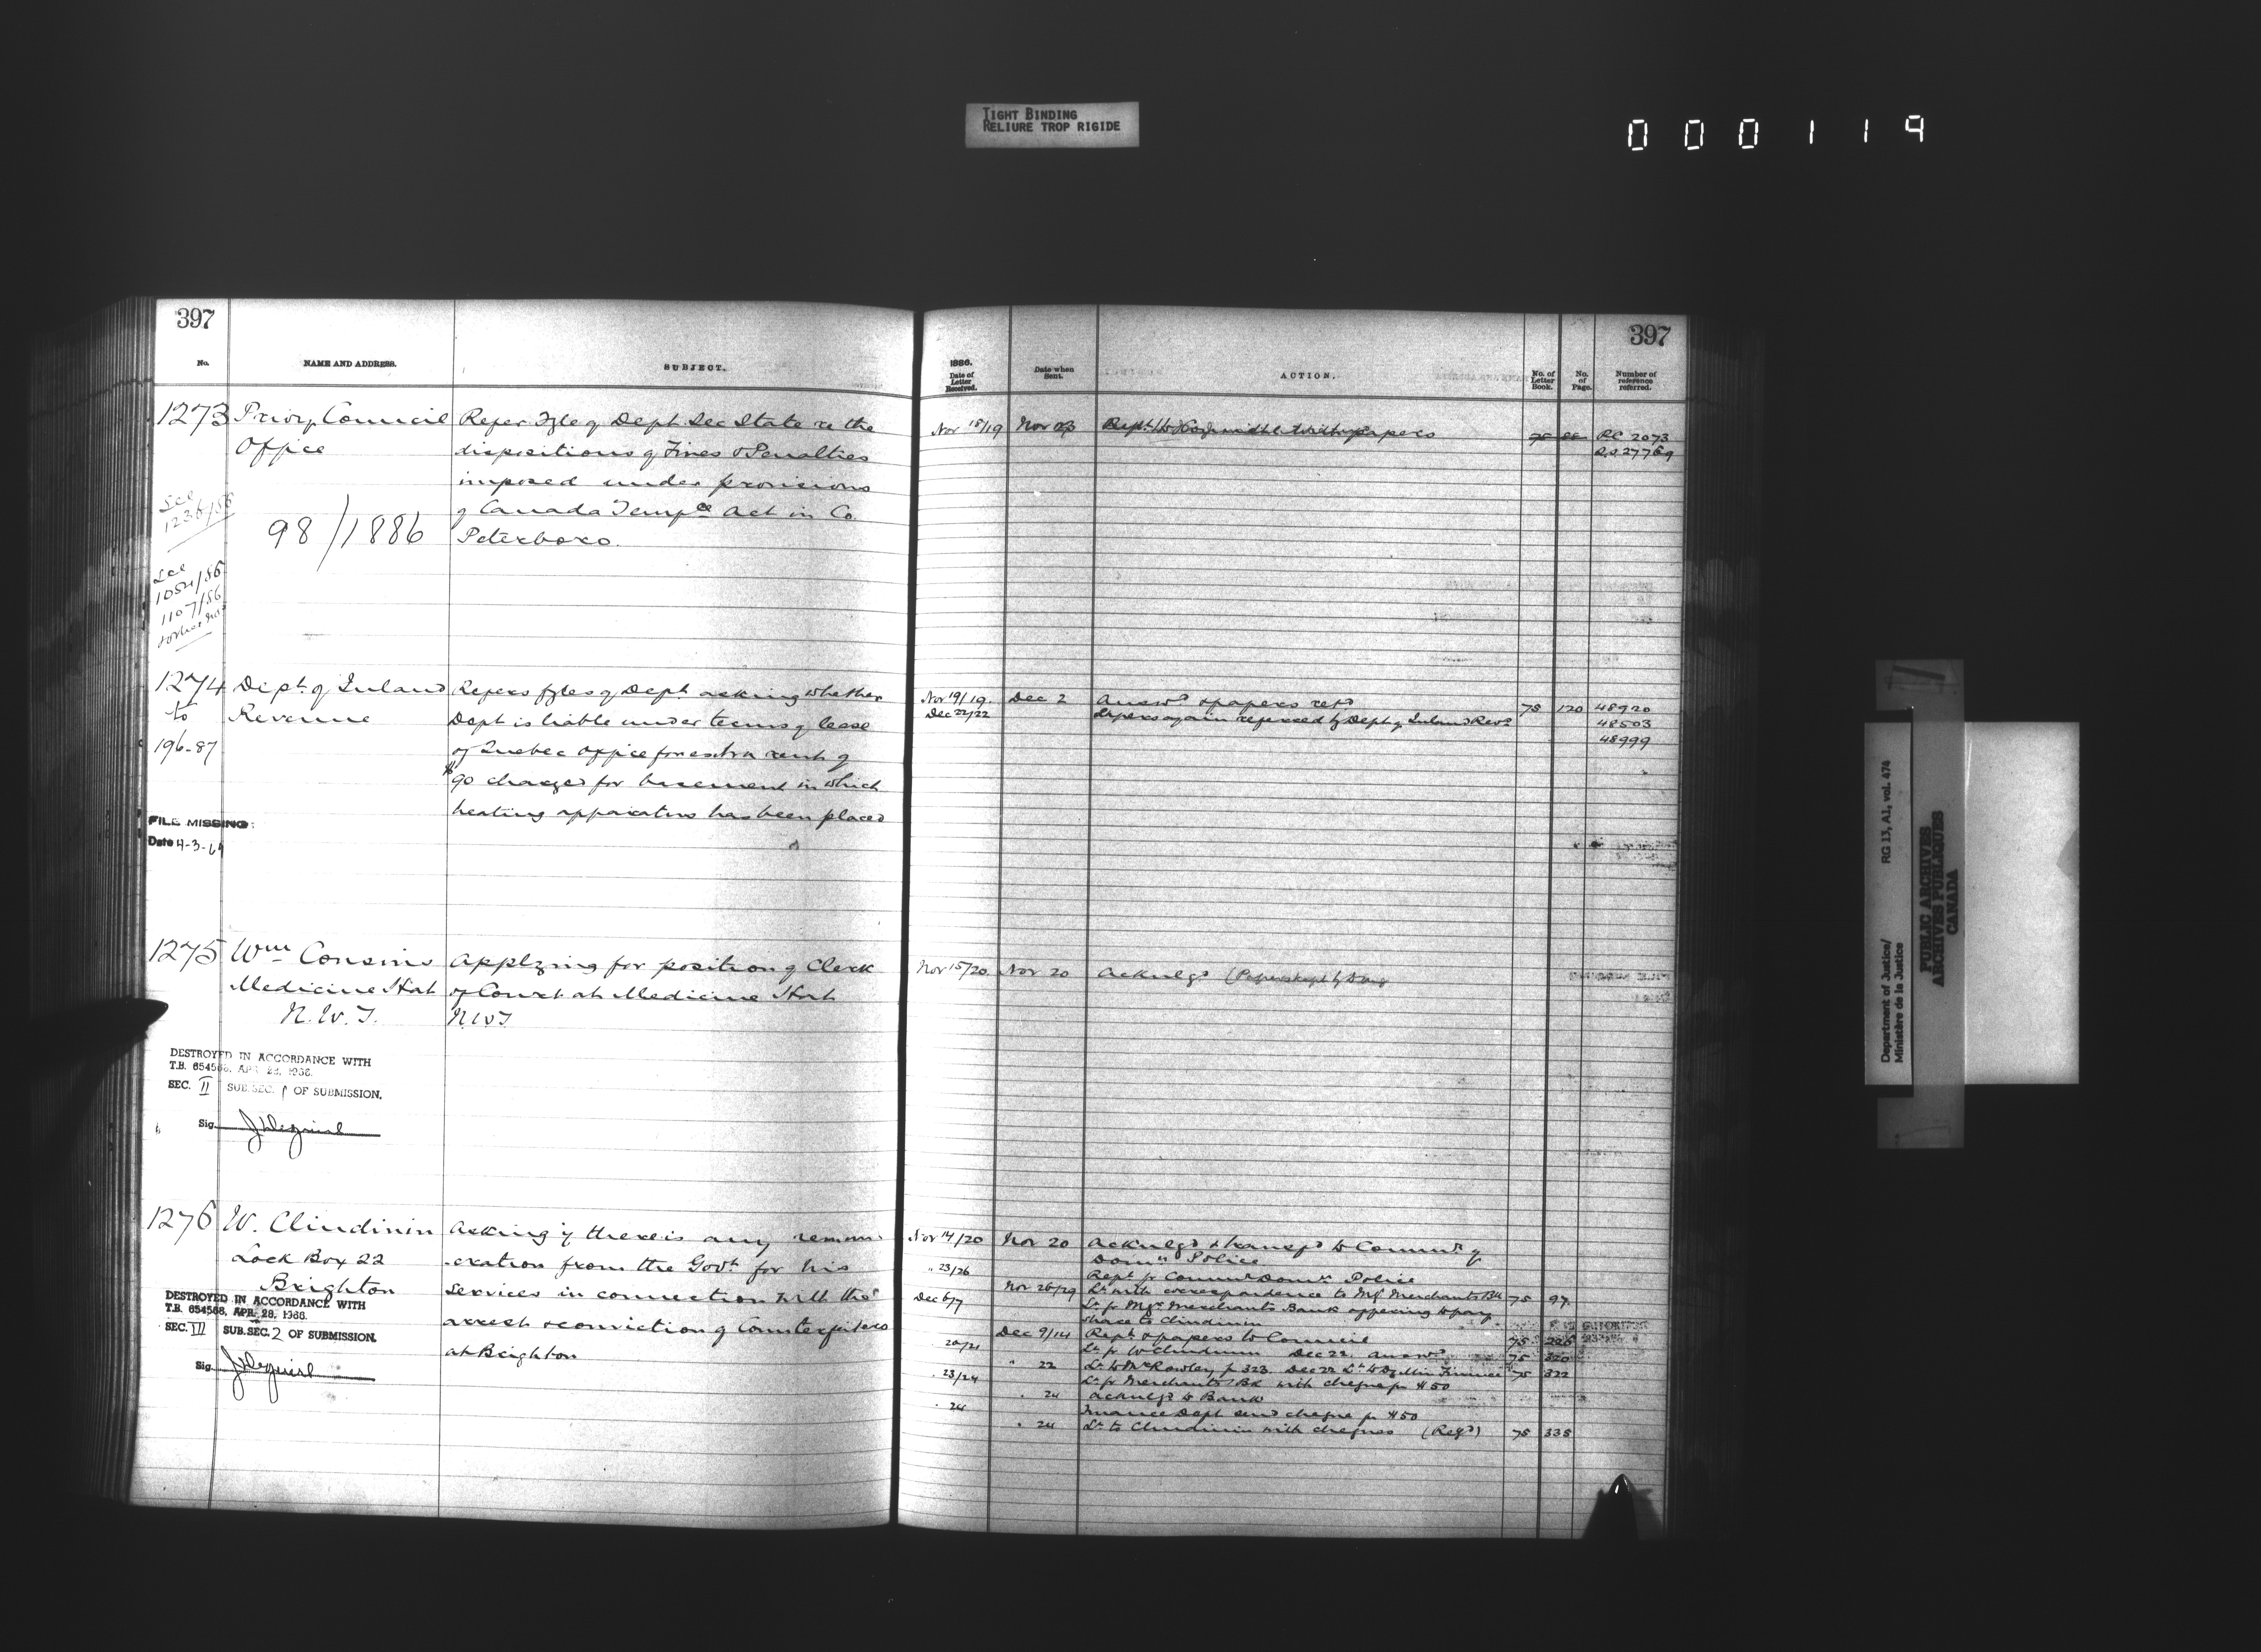 TIGHT BINDING
RELIURE TROP RIGIDE
000119
397
No.
NAME AND ADDRESS.
SUBJECT.
1273 Privy Council
Office
See
1236/86
98/1886
See
1054/86
1107/86
Refer Fyle of Dept Sec State re the
dispositions of Fines & Penalties
imposed under provisions
of Canada Tempce Act in Co.
Peterboro.
1274 Dept. of Inland
to Revenue
196-87
FILE MISSING:
Date 4-3-64
Refers fyles of Dept asking whether
Dept is liable under terms of lease
of Quebec office for extra rent of
$90 charged for basement in which
heating apparatus has been placed
1275 Wm Cousins
Medicine Hat
N.W.T.
Applying for position of Clerk
of Court at Medicine Hat
N.W.T
DESTROYED IN ACCORDANCE WITH
T.B. 654568, APR 28, 1966.
SEC. II SUB.SEC. 1 OF SUBMISSION.
Sig.
1276 W. Clindinin
Lock Box 22
Brighton
Asking if there is any remun-
-eration from the Govt for his
services in connection with the
arrest & conviction of Counterfeiters
at Brighton
DESTROYED IN ACCORDANCE WITH
T.B. 654568, APR. 28, 1966.
SEC. VII SUB.SEC. 2 OF SUBMISSION.
Sig.
397
1886.
Date of
Letter
Received.
Date when
Sent.
ACTION.
No. of
Letter
Book.
No.
of
Page.
Number of
reference
referred.
Nov 18/19 Nov 23 papers 75 P.C. 2073
27769
Nov 19/19. Dec 2 Answd & papers retd 75 120 48920
Dec 22/22 Papers again referred by Dept of Inland Reve 48503
48999
Nov 15/20 Nov 20 Acknlgd
Nov 14/20 Nov 20 Acknlgd & transfd to Commr of
Domn Police
" 23/26 Rept fr Commr Domn Police
Nov 26/29 Lr with correspondence to Mgr Merchants Bk 75 97
Dec 6/7 Lr fr Mgr Merchants Bank offering to pay
share to Clindinin
Dec 9/14 Rept & papers to Council 75 226
" 20/21 Lr fr W Clindinin Dec 22. Answd 75 320
" 22 Lr to Mr Rowley p 323. Dec 22 Lr to Dy Min Finance 75 322
" 23/24 Lr fr Merchants Bk with cheque for $50
" 24 Acknlgd to Bank
" 24 Finance Dept send cheque for $50
" 24 Lr to Clindinin with cheques (Regd) 75 335
Department of Justice/
Ministère de la Justice
RG 13, A1, vol. 474
PUBLIC ARCHIVES
ARCHIVES PUBLIQUES
CANADA